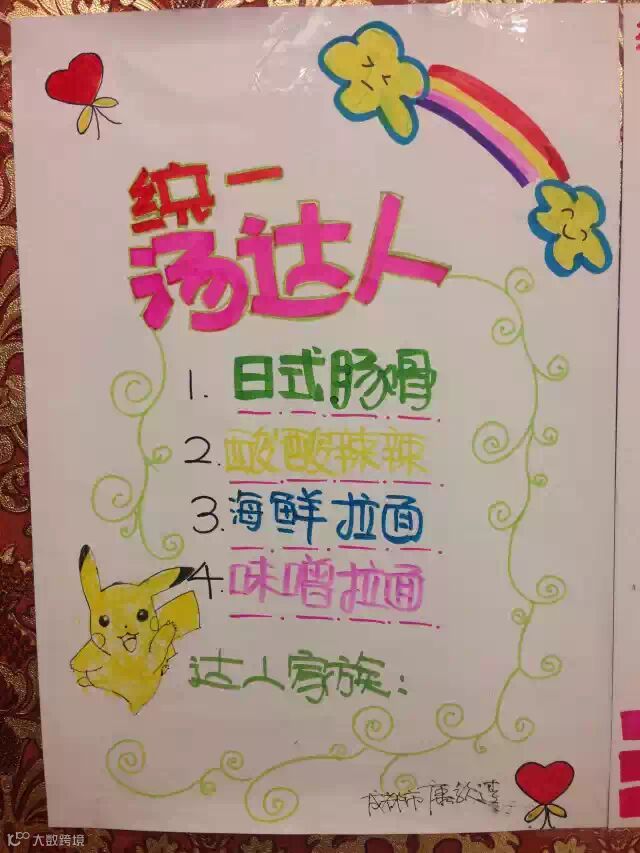 统一
汤达人
1. 日式豚骨
2. 酸酸辣辣
3. 海鲜拉面
4. 味噌拉面
达人家族:
成都市 康
大数跨境